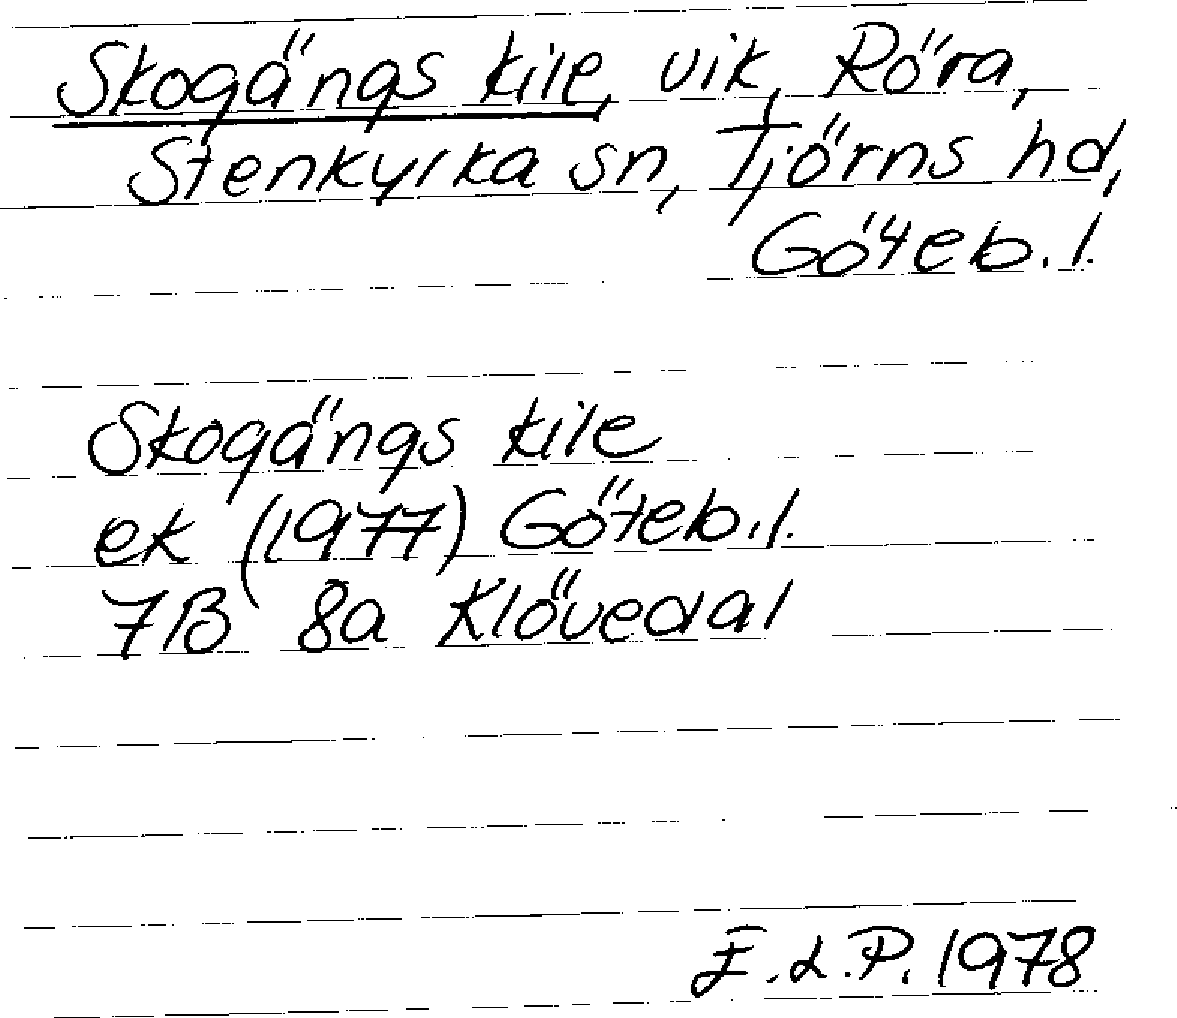 Skogängs kile, vik, Röra,
Stenkyrka sn, Tjörns hd,
Göteb. l.
Skogängs kile
ek (1977) Göteb. l.
7B 8a Klövedal
E.L.P. 1978